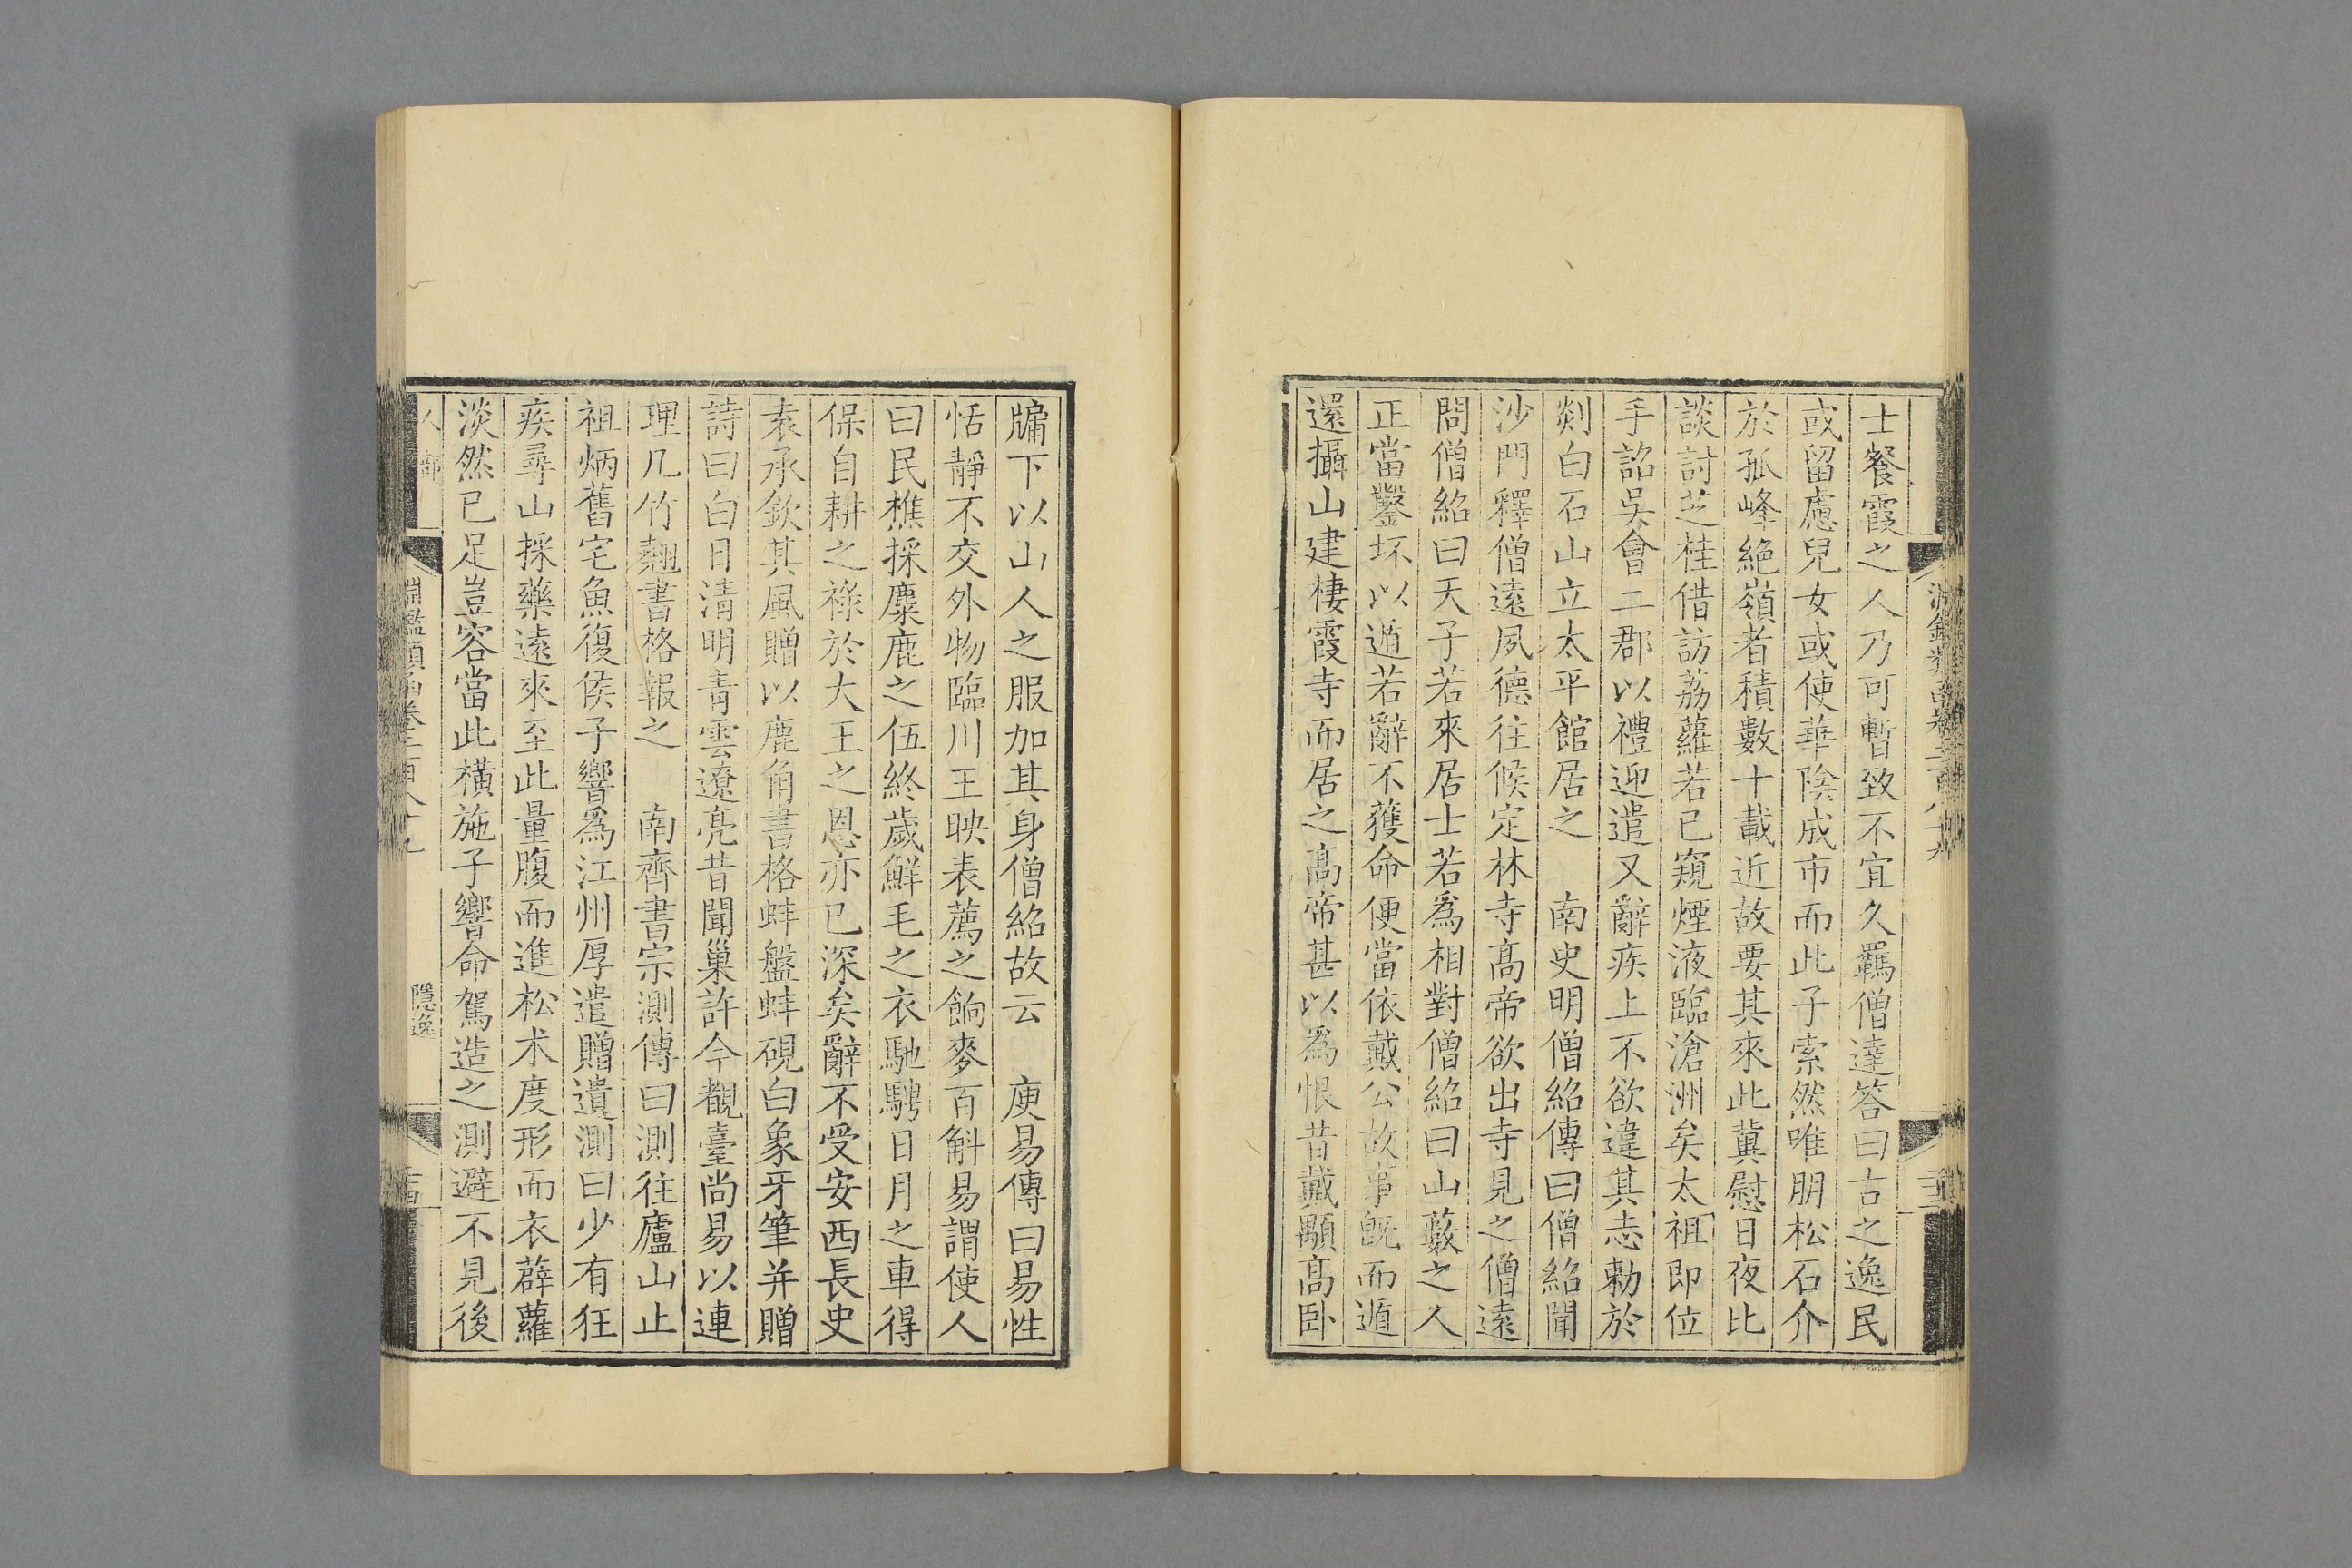 士餐霞之人乃可暫致不宜久羈僧達答曰古之逸民
或留慮兒女或使華陰成市而此子索然唯朋松石介
於孤峰絶嶺者積數十載近故要其來此冀慰日夜比
談討芝桂借訪荔蘿若已窺煙液臨滄洲矣太祖即位
手詔吳會二郡以禮迎遣又辭疾上不欲違其志勅於
剡白石山立太平館居之 南史明僧紹傳曰僧紹聞
沙門釋僧遠夙德往候定林寺髙帝欲出寺見之僧遠
問僧紹曰天子若來居士若爲相對僧紹曰山藪之人
正當鑿坏以遁若辭不獲命便當依戴公故事既而遁
還攝山建棲霞寺而居之髙帝甚以爲恨昔戴顒髙臥
牖下以山人之服加其身僧紹故云 庾易傳曰易性
恬靜不交外物臨川王映表薦之餉麥百斛易謂使人
曰民樵採麋鹿之伍終歲鮮毛之衣馳騁日月之車得
保自耕之祿於大王之恩亦已深矣辭不受安西長史
袁承欽其風贈以鹿角書格蚌盤蚌硯白象牙筆并贈
詩曰白日清明青雲遼亮昔聞巢許今覩臺尚易以連
理几竹翹書格報之 南齊書宗測傳曰測往廬山止
祖炳舊宅魚復侯子響爲江州厚遣贈遺測曰少有狂
疾尋山採藥遠來至此量腹而進松术度形而衣薜蘿
淡然已足豈容當此橫施子響命駕造之測避不見後
人部
淵鑑類函卷二百八十九
隱逸